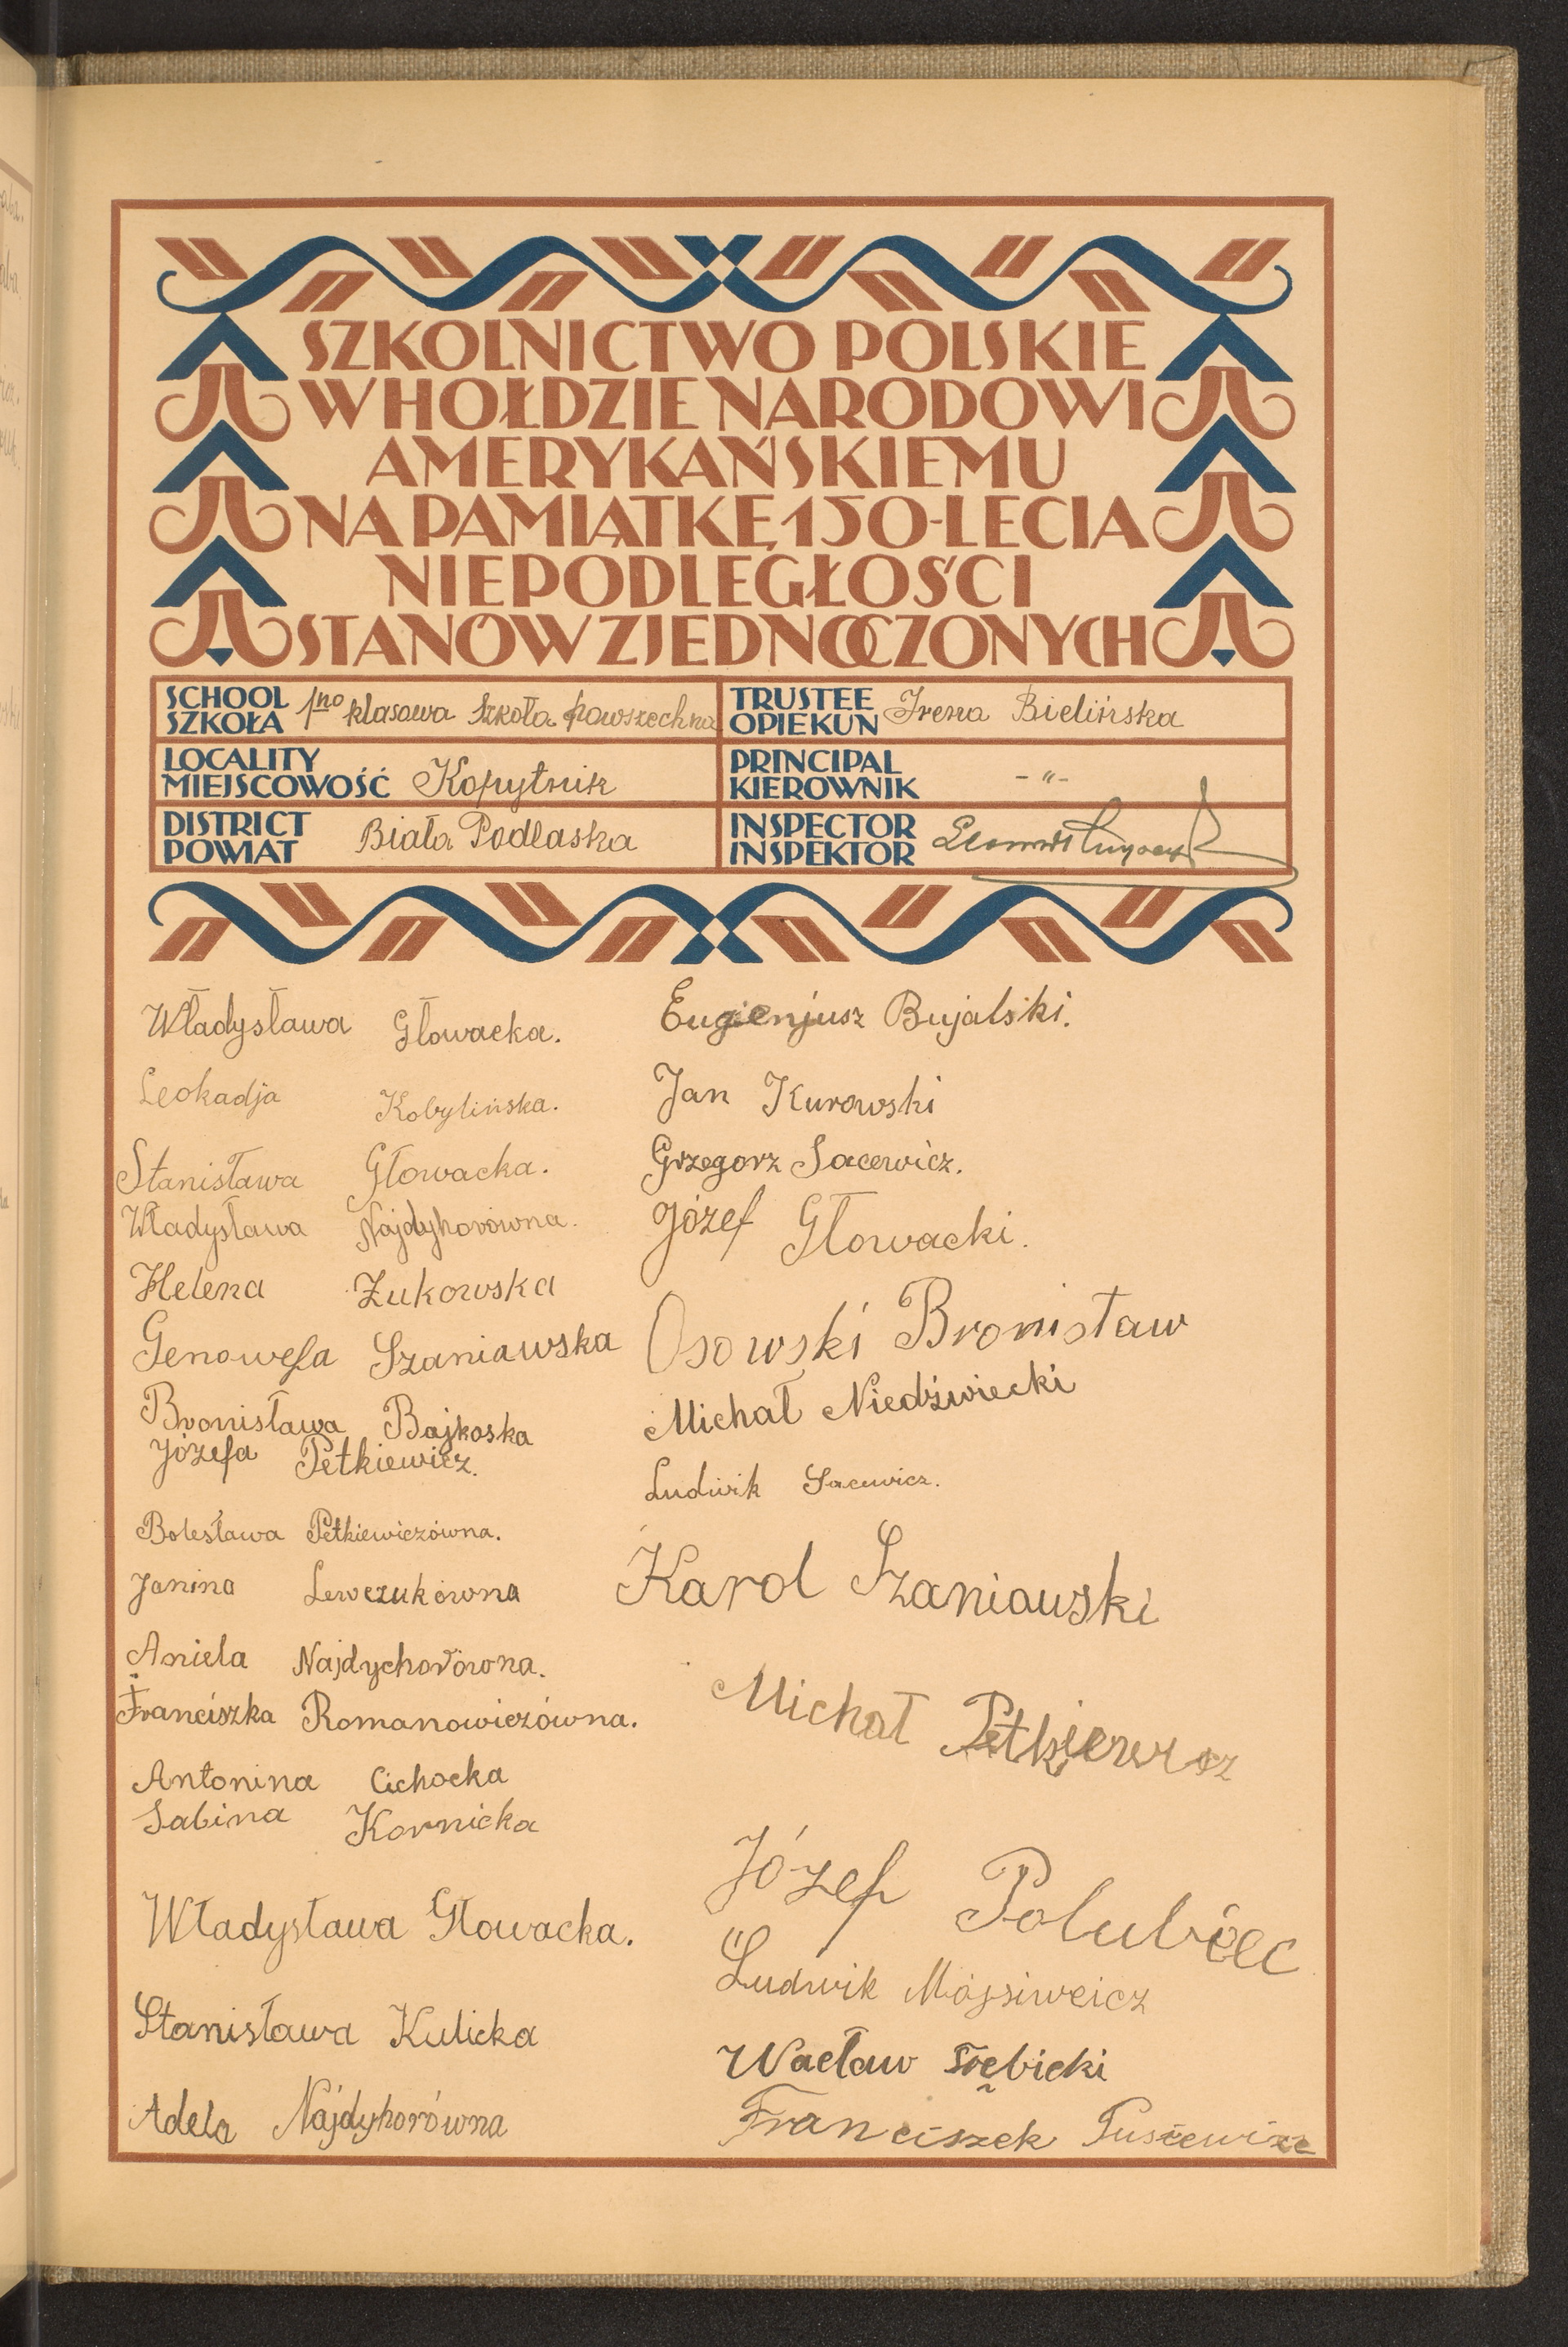 SZKOLNICTWO POLSKIE
W HOŁDZIE NARODOWI
AMERYKAŃSKIEMU
NA PAMIĄTKĘ 150-LECIA
NIEPODLEGŁOŚCI
STANÓW ZJEDNOCZONYCH
SCHOOL
SZKOŁA 1no klasowa Szkoła powszechna
TRUSTEE
OPIEKUN Irena Bielińska
LOCALITY
MIEJSCOWOŚĆ Kopytnik
PRINCIPAL
KIEROWNIK -"-
DISTRICT
POWIAT Biała Podlaska
INSPECTOR
INSPEKTOR
Władysława Głowacka.
Leokadja Kobylińska.
Stanisława Głowacka.
Władysława Najdyhorówna.
Helena Żukowska
Genowefa Szaniawska
Bronisława Bajkoska
Józefa Petkiewicz.
Bolesława Petkiewiczówna.
Janina Lewczukówna
Aniela Najdychorówna.
Franciszka Romanowiczówna.
Antonina Cichocka
Sabina Kornicka
Władysława Głowacka.
Stanisława Kulicka
Adela Najdyhorówna
Eugienjusz Bujalski.
Jan Kurowski
Grzegorz Sacewicz.
Józef Głowacki.
Osowski Bronisław
Michał Niedźwiecki
Ludwik Sacewicz.
Karol Szaniawski
Michał Petkiewicz
Józef Polubiec
Ludwik Mojsiweicz
Wacław Trębicki
Franciszek